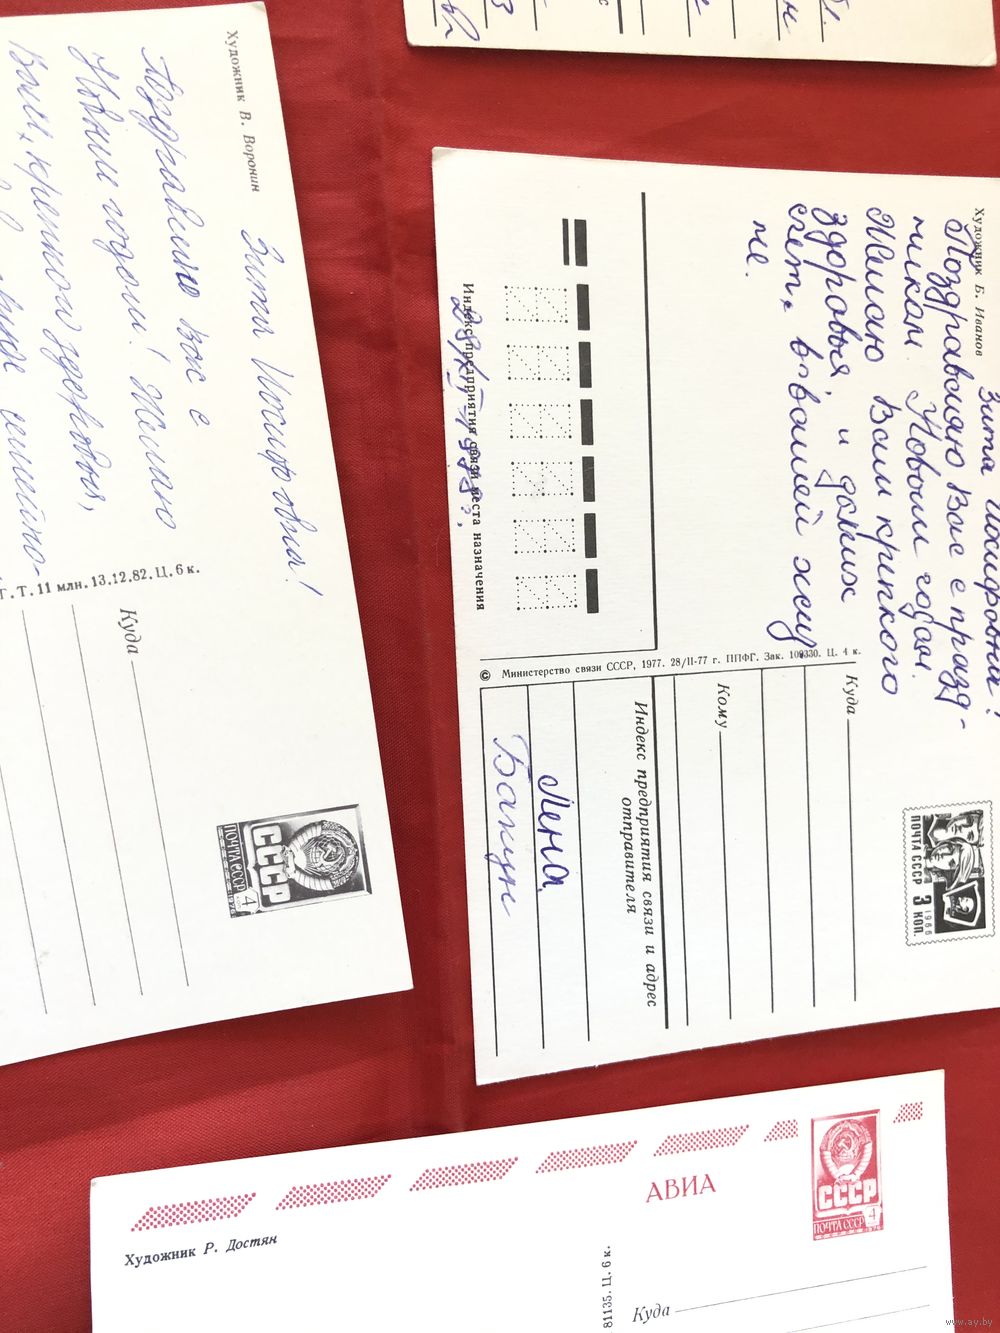 Художник В. Воронин
Зита Иосифовна!
Поздравляю Вас с
Новым годом! Желаю
Вам, крепкого здоровья,
Г.Т. 11 млн. 13.12.82. Ц. 6 к.
Куда
СССР
ПОЧТА СССР
4
1976
Художник Б. Иванов
Зита
Поздравляю Вас с празд-
ником Новым годом.
Желаю Вам крипкого
здоровья, и долгих
лет, в вашей жиз
не.
Индекс предприятия связи места назначения
© Министерство связи СССР, 1977. 28/II-77 г. ППФГ. Зак. 109330. Ц. 4 к.
Куда
Кому
Индекс предприятия связи и адрес
отправителя
Лена
Бакун
ПОЧТА СССР 3 КОП.
1966
АВИА
СССР
ПОЧТА СССР 4
Художник Р. Достян
81135. Ц. 6 к.
Куда
www.ay.by